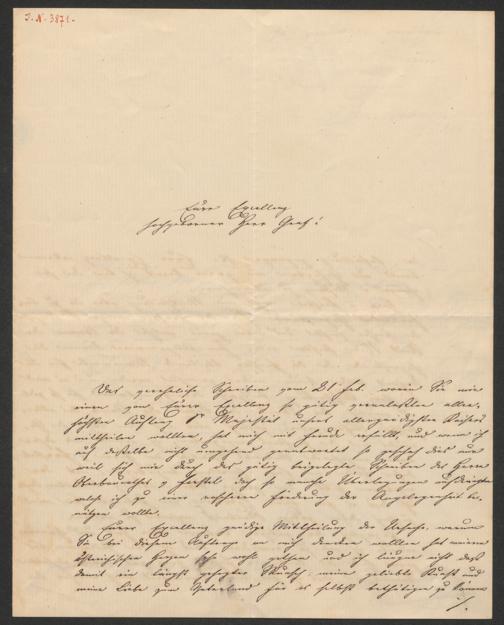 I. N. 3871.
Eurer Excellenz
hochgeborner Herr Graf!
Das verehrliche Schreiben vom 21 Feb. worin Sie mir
einen von Eurer Excellenz so gütig veranlaßten aller-
höchsten Auftrag Sr Majestät unsers allergnädigsten Kaisers
mittheilen wollten, hat mich mit Freude erfüllt, und wenn ich
auf dasselbe nicht umgehend geantwortet so geschah dies nur
weil sich mir durch das gütig beigelegte Schreiben des Herrn
Oberbaurathes v Ferstel doch so manche Überlegungen aufdrängten
welche ich zu einer rascheren Förderung der Angelegenheit be-
nützen wollte.
Eurer Excellenz gnädige Mittheilung der Ursache, warum
Sie bei diesem Auftrage an mich denken wollten hat meinem
österreichischen Herzen sehr wohl gethan und ich läugne nicht daß
damit ein längst gehegter Wunsch: meine geliebte Kunst und
meine Liebe zum Vaterland für es selbst bethätigen zu können